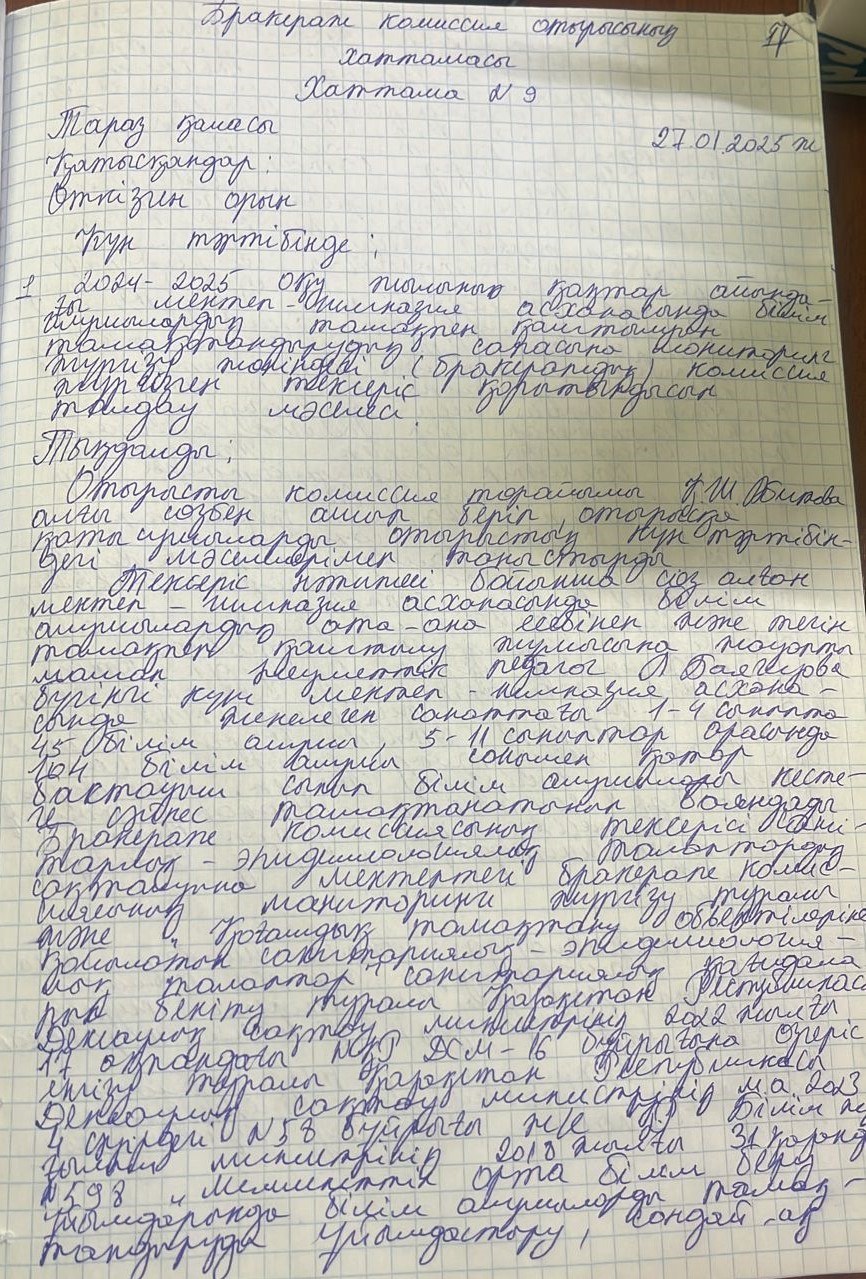 Бракераж комиссия отырысының
17
хаттамасы
Хаттама N 9
Тараз қаласы
27.01.2025 ж
Қатысқандар:
Өткізген орын
Күн тәртібінде;
1 2024-2025 оқу жылының қаңтар айында-
ғы мектеп-гимназия асханасында білім
алушылардың тамақпен қамтылуын
тамақтандырудың сапасына мониторинг
жүргізу жөніндегі (бракераждық) комиссия
жүргізген тексеріс қорытындысын
талдау мәселесі.
Тыңдалды;
Отырысты комиссия төрайымы Қ.Ш.
алғы сөзбен ашып беріп, отырысқа
қатысушыларды отырыстың күн тәртібін-
дегі мәселелерімен таныстырды
Тексеріс нәтижесі бойынша сөз алған
мектеп-гимназия асханасында білім
алушылардың ата-ана есебінен және тегін
тамақпен қамтылу жұмысына жауапты
маман әлеуметтік педагог
бүгінгі күні мектеп-гимназия асхана-
сында жеңілеген санаттағы 1-4 сыныпта
45 білім алушы, 5-11 сыныптар арасында
104 білім алушы сонымен қатар
бастауыш сынып білім алушылары кесте-
ге сәйкес тамақтанатынын баяндады
Бракераж комиссиясының тексерісі сани-
тарлық-эпидемиологиялық талаптардың
сақталуына мектептегі бракераж комис-
сиясының мониторинг жүргізу туралы
және "Қоғамдық тамақтану объектілеріне
қойылатын санитариялық-эпидемиология-
лық талаптар" санитариялық қағидала
рын бекіту туралы Қазақстан Республикасы
Денсаулық сақтау министрінің 2022 жылғы
17 ақпандағы ҚР ДСМ-16 бұйрығына өзгеріс
енгізу туралы Қазақстан Республикасы
Денсаулық сақтау министрінің м.а. 2023
4 сәуірдегі N58 бұйрығы және ҚР Білім және
ғылым министрінің 2018 жылғы 31 қазандағы
N598 "Мемлекеттік орта білім беру
ұйымдарында білім алушыларды тамақ-
тандыруды ұйымдастыру, сондай-ақ